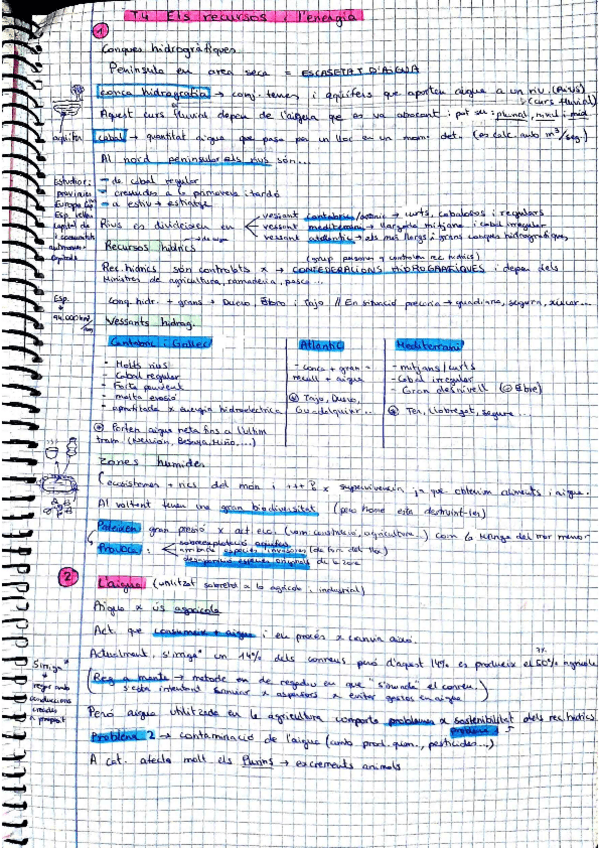 T4 Els recursos i l'energia
1
Conques hidrogràfiques
Península en area seca = ESCASETAT D'AIGUA
conca hidrografia → conj. terres i aqüífers que aporten aigua a un riu. (RIUS)
(curs fluvial)
Aquest curs fluvial depen de l'aigua que es va abocant i pot ser: plurial, nival, mid
aqüífer
cabal → quantitat aigua que passa per un lloc en un mom. det. (es calc. amb m³/seg)
Al nord peninsular els rius són...
- de cabal regular
- crescudes a la primavera i tardó
- a estiu → estiatge
Rius es divideixen en
vessant cantabrica/ → curts, cabalosos i regulars
vessant mediterrania → llargària mitjana i cabal irregular
vessant atlantic → els més llargs i grans conques hidrogràfiques,
Recursos hídrics
(grup persones q controlen rec. hídrics)
Rec. hídrics són controlats x → CONFEDERACIONS HIDROGRÀFIQUES i depen dels
Ministres de agricultura, ramaderia, pesca...
Esp.
Conq. hidr. + grans → Duero, Ebro i Tajo // En situació precaria → guadiana, segura, xúcar...
Vessants hidrog.
Cantabric i Gallec
- Molts rius
- Cabal regular
- Forta pendent
- molta erosió
- aprofitada x energia hidroelectrica
Porten aigua neta fins a l'últim
tram. (Nervion, Besaya, Miño, ...)
Atlantic
- conca + gran →
recull + aigua
Tajo, Duero,
Guadalquivir...
Mediterrani
- mitjans/curts
- Cabal irregular
- Gran desnivell (Ebre)
Ter, Llobregat, Segura...
Zones humides
Ecosistemes + rics del món i +++ x supervivencia ja que obtenim aliments i aigua.
Al voltant tenen una gran biodiversitat (pero home esta destruint-les)
Pateixen gran pressió x act. eco. (com construcció, agricultura..) com la Manga del mar menor
Provoca:
sobreexplotació aqüífers
arribada especies invasores
desaparició especies originals de la zona
2
L'aigua (utilitzat sobretot x la agricola i industrial)
Aigua x ús agricola
Act. que consumeix + aigua i eu procés x canvia això.
Actualment, s'irriga* un 14% dels conreus però d'aquest 14% es produeix el 50% agricola
Sirriga*
regar amb
conduccions
creades
a proposit
(Reg a manta → metode en de regadiu en que "s'inunda" el conreu.)
s'està intentant canviar x aspersors x evitar gastos en aigua
Però aigua utilitzada en la agricultura comporta problemes x sostenibilitat dels rec. hídrics
problema 1
Problema 2 → contaminació de l'aigua (amb prod. quim., pesticides...)
A cat. afecta molt els Purins → excrements animals